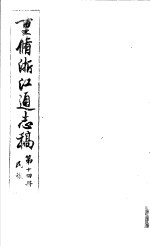 重修浙江通志稿
第十四冊
民族